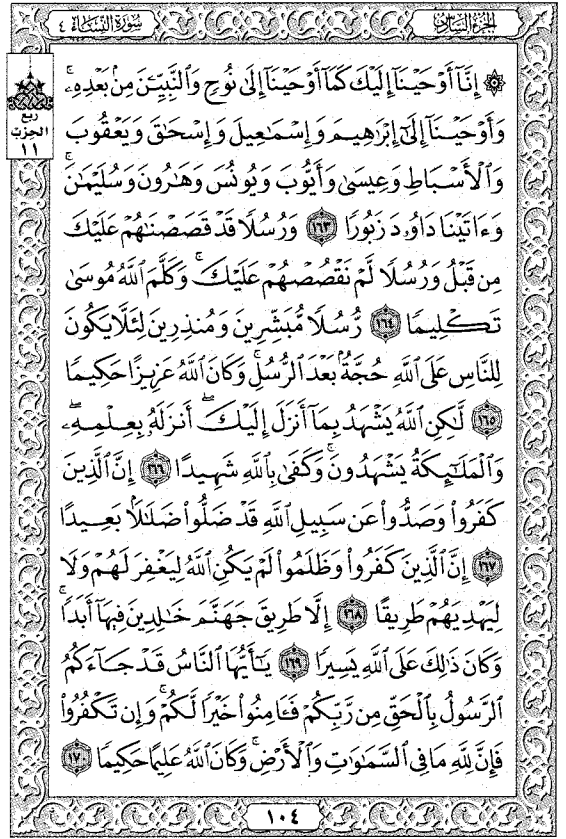 الجزء السادس
سورة النساء ٤
ربع
الحزب
١١
۞ إِنَّآ أَوْحَيْنَآ إِلَيْكَ كَمَآ أَوْحَيْنَآ إِلَىٰ نُوحٍ وَٱلنَّبِيِّـۧنَ مِنۢ بَعْدِهِۦۚ
وَأَوْحَيْنَآ إِلَىٰٓ إِبْرَٰهِيمَ وَإِسْمَٰعِيلَ وَإِسْحَٰقَ وَيَعْقُوبَ
وَٱلْأَسْبَاطِ وَعِيسَىٰ وَأَيُّوبَ وَيُونُسَ وَهَٰرُونَ وَسُلَيْمَٰنَۚ
وَءَاتَيْنَا دَاوُۥدَ زَبُورًا ١٦٣ وَرُسُلًا قَدْ قَصَصْنَٰهُمْ عَلَيْكَ
مِن قَبْلُ وَرُسُلًا لَّمْ نَقْصُصْهُمْ عَلَيْكَۚ وَكَلَّمَ ٱللَّهُ مُوسَىٰ
تَكْلِيمًا ١٦٤ رُّسُلًا مُّبَشِّرِينَ وَمُنذِرِينَ لِئَلَّا يَكُونَ
لِلنَّاسِ عَلَى ٱللَّهِ حُجَّةٌۢ بَعْدَ ٱلرُّسُلِۚ وَكَانَ ٱللَّهُ عَزِيزًا حَكِيمًا
١٦٥ لَّٰكِنِ ٱللَّهُ يَشْهَدُ بِمَآ أَنزَلَ إِلَيْكَۖ أَنزَلَهُۥ بِعِلْمِهِۦۖ
وَٱلْمَلَٰٓئِكَةُ يَشْهَدُونَۚ وَكَفَىٰ بِٱللَّهِ شَهِيدًا ١٦٦ إِنَّ ٱلَّذِينَ
كَفَرُوا۟ وَصَدُّوا۟ عَن سَبِيلِ ٱللَّهِ قَدْ ضَلُّوا۟ ضَلَٰلًۢا بَعِيدًا
١٦٧ إِنَّ ٱلَّذِينَ كَفَرُوا۟ وَظَلَمُوا۟ لَمْ يَكُنِ ٱللَّهُ لِيَغْفِرَ لَهُمْ وَلَا
لِيَهْدِيَهُمْ طَرِيقًا ١٦٨ إِلَّا طَرِيقَ جَهَنَّمَ خَٰلِدِينَ فِيهَآ أَبَدًاۚ
وَكَانَ ذَٰلِكَ عَلَى ٱللَّهِ يَسِيرًا ١٦٩ يَٰٓأَيُّهَا ٱلنَّاسُ قَدْ جَآءَكُمُ
ٱلرَّسُولُ بِٱلْحَقِّ مِن رَّبِّكُمْ فَـَٔامِنُوا۟ خَيْرًا لَّكُمْۚ وَإِن تَكْفُرُوا۟
فَإِنَّ لِلَّهِ مَا فِى ٱلسَّمَٰوَٰتِ وَٱلْأَرْضِۚ وَكَانَ ٱللَّهُ عَلِيمًا حَكِيمًا ١٧٠
١٠٤